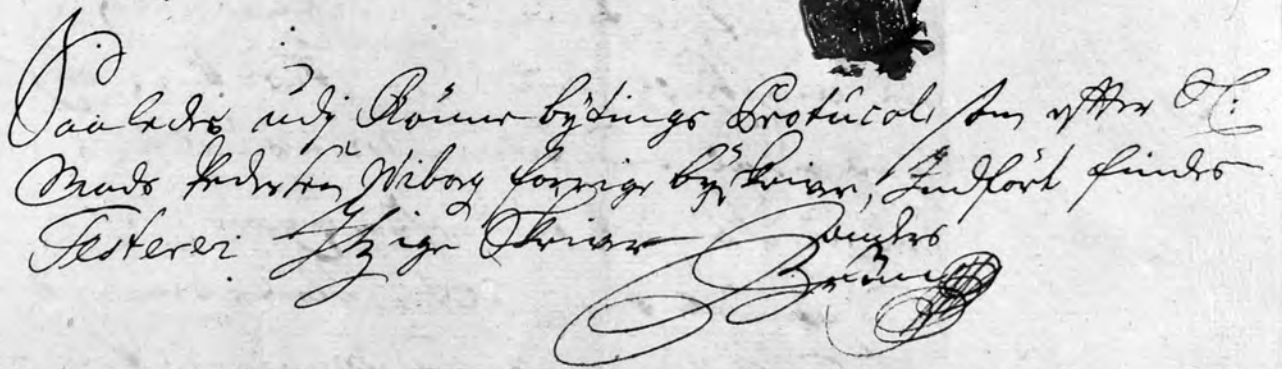 Saaledis udj Rönne bÿtings Protucol, som efter Sl:
Mads Pedersen Wiborg forrige bÿskriver, Indfört findes
Testerer Itzige Skriver Anders
Bruun